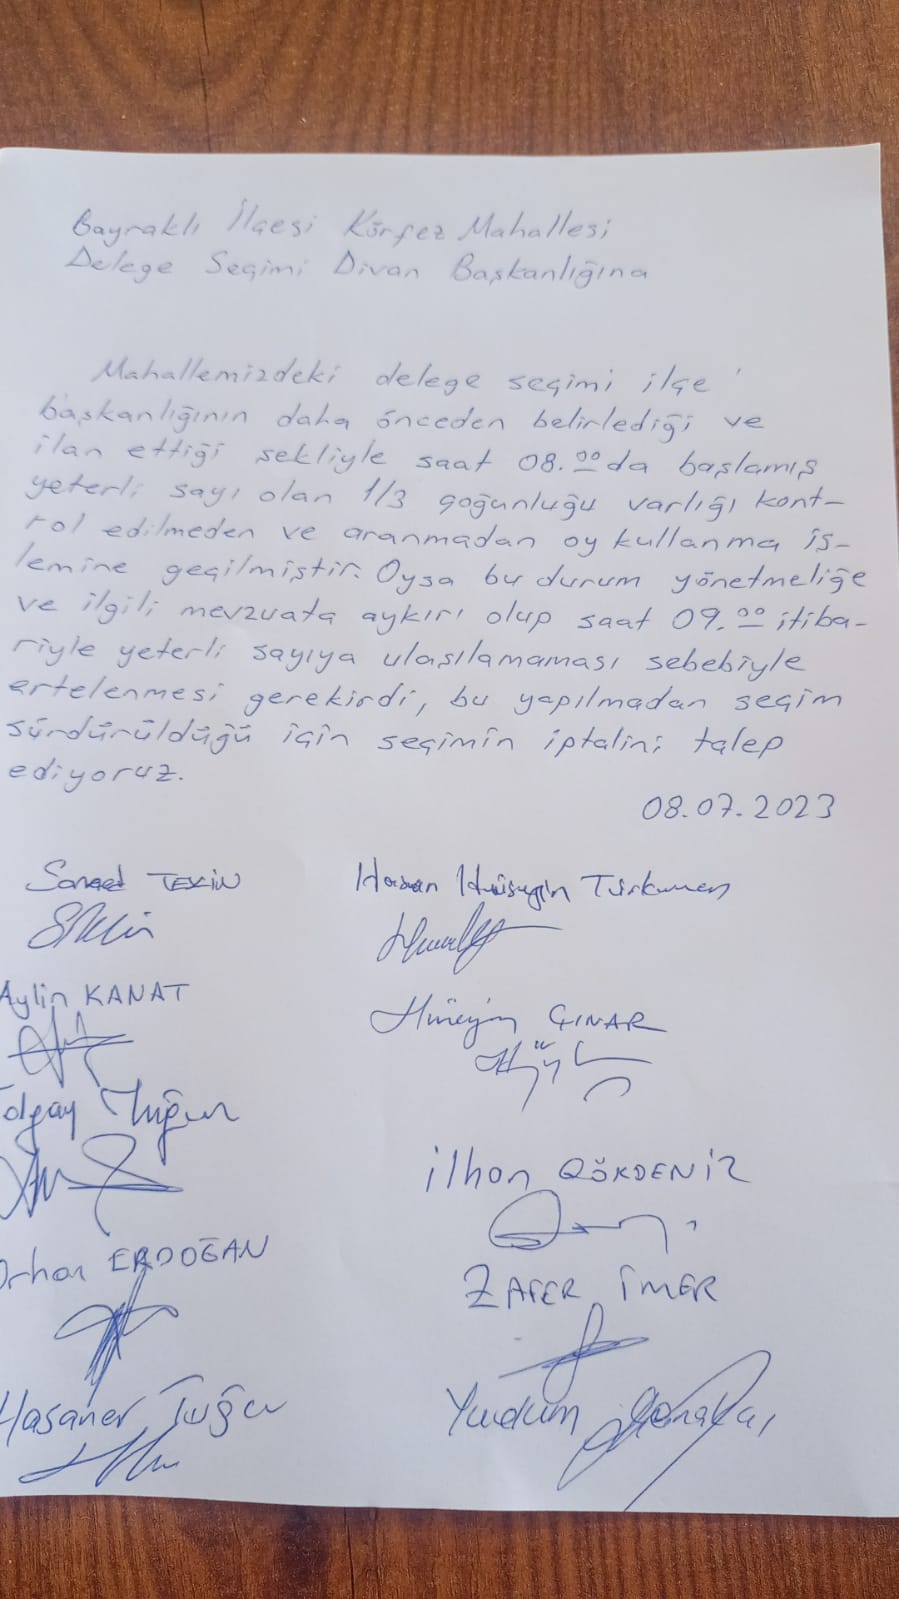 Bayraklı İlçesi Körfez Mahallesi
Delege Seçimi Divan Başkanlığına
Mahallemizdeki delege seçimi ilçe
başkanlığının daha önceden belirlediği ve
ilan ettiği sekliyle saat 08.00 da başlamış
yeterli sayı olan 1/3 çoğunluğu varlığı kont-
rol edilmeden ve aranmadan oy kullanma iş-
lemine geçilmiştir. Oysa bu durum yönetmeliğe
ve ilgili mevzuata aykırı olup saat 09.00 itiba-
riyle yeterli sayıya ulaşılamaması sebebiyle
ertelenmesi gerekirdi, bu yapılmadan seçim
sürdürüldüğü için seçimin iptalini talep
ediyoruz.
08.07.2023
TEKİN
Hasan Hüseyin Türkmen
Aylin KANAT
Hüseyin ÇINAR
Tolgay
İlhan GÖKDENİZ
Orhan ERDOĞAN
ZAFER İMER
Hasaner